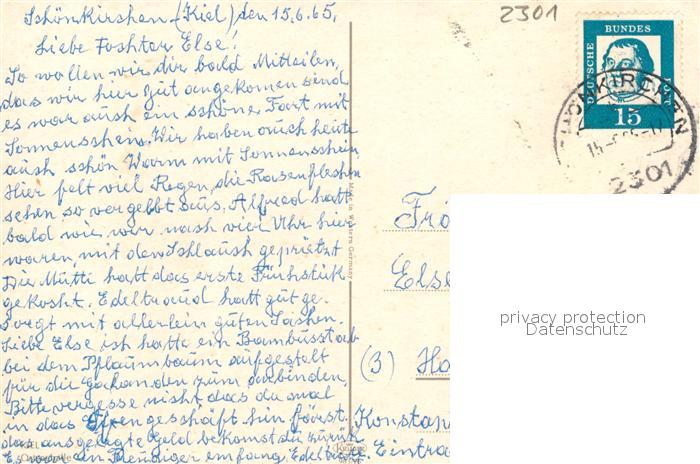 2301
Schönkirchen-(Kiel) den 15.6.65.
Liebe Toshter Else!
So wollen wir dir bald Mitteilen,
das wir hier gut angekomen send
es war auch ein schöne Fart mit
Sonnensshein. Wir haben auch heute
auch schön Warm mit Sonnensshein
Hier felt viel Regen, die Rasenfleshen
sehen so vergelbt aus. Alfred hatt
bald wie wir nach vier Uhr hier
waren, mit den Schlaush gesprietzt
Die Mutti hatt das erste Frühstük
gekosht. Edeltraud hatt gut ge-
sorgt mit allerlein guten Sashen.
Liebe Else ish hatte ein Bambusstab
bei dem Pflaumbaum aufgestelt
für die zum anbinden,
Bitte vergesse nisht das du mal
in das geschäft hin färst
das ausgelegte Geld bekomst du zurük
Es war ein Freudiger emfang
DEUTSCHE
BUNDES
POST
15
SCHÖNKIRCHEN
2301
Made in Western Germany
Else
(3) Ha
Konstan
Eintra
privacy protection
Datenschutz